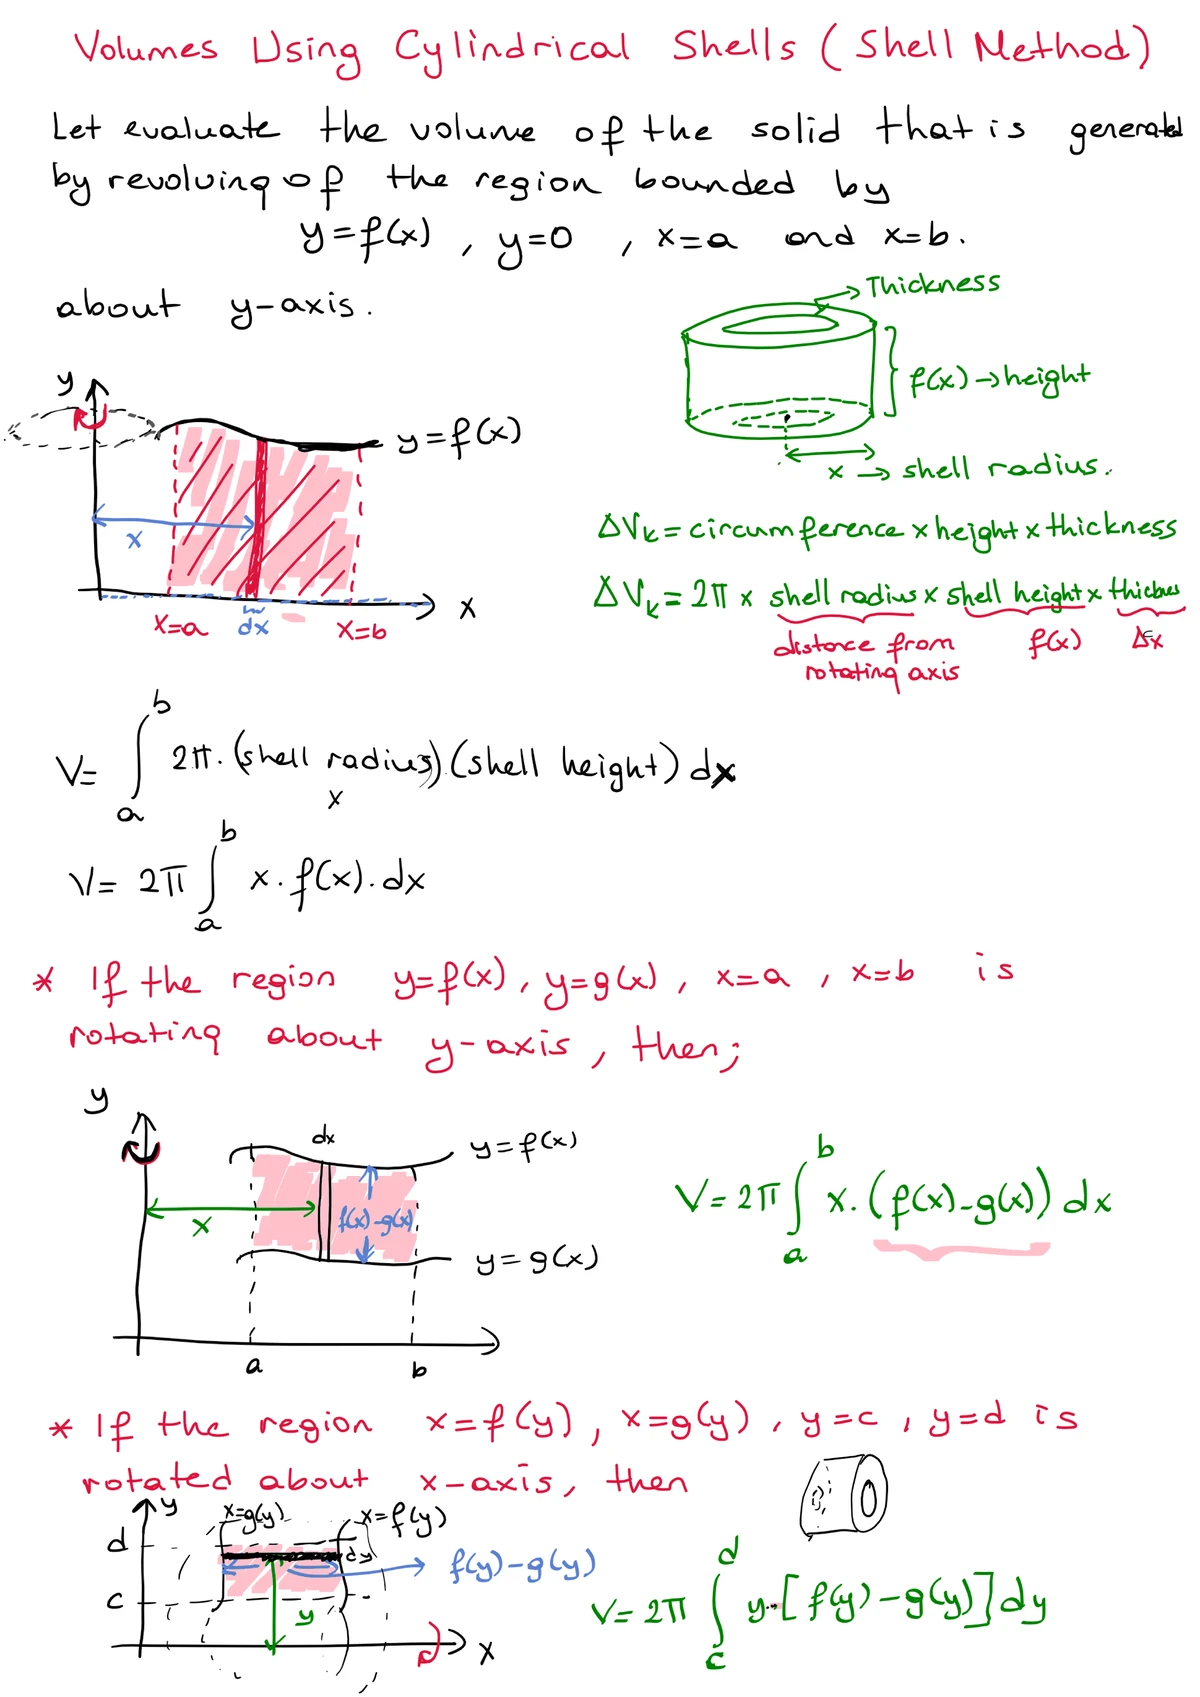 Volumes Using Cylindrical Shells (Shell Method)
Let evaluate the volume of the solid that is generated
by revolving of the region bounded by
y=f(x) , y=0 , x=a and x=b.
about y-axis.
Thickness
f(x) → height
x → shell radius.
y
y=f(x)
x
x
x=a dx x=b
ΔVk = circumference x height x thickness
ΔVk = 2π x shell radius x shell height x thicknes
distance from f(x) Δx
rotating axis
V= ∫_a^b 2π. (shell radius).(shell height) dx
x
V= 2π ∫_a^b x.f(x).dx
* If the region y=f(x), y=g(x), x=a , x=b is
rotating about y-axis, then;
y
dx
y=f(x)
x
f(x)-g(x)
y=g(x)
a b
V= 2π ∫_a^b x.(f(x)-g(x)) dx
* If the region x=f(y), x=g(y), y=c, y=d is
rotated about x-axis, then
y
x=g(y) x=f(y)
d
dy
f(y)-g(y)
c
y
x
V= 2π ∫_c^d y.[f(y)-g(y)]dy